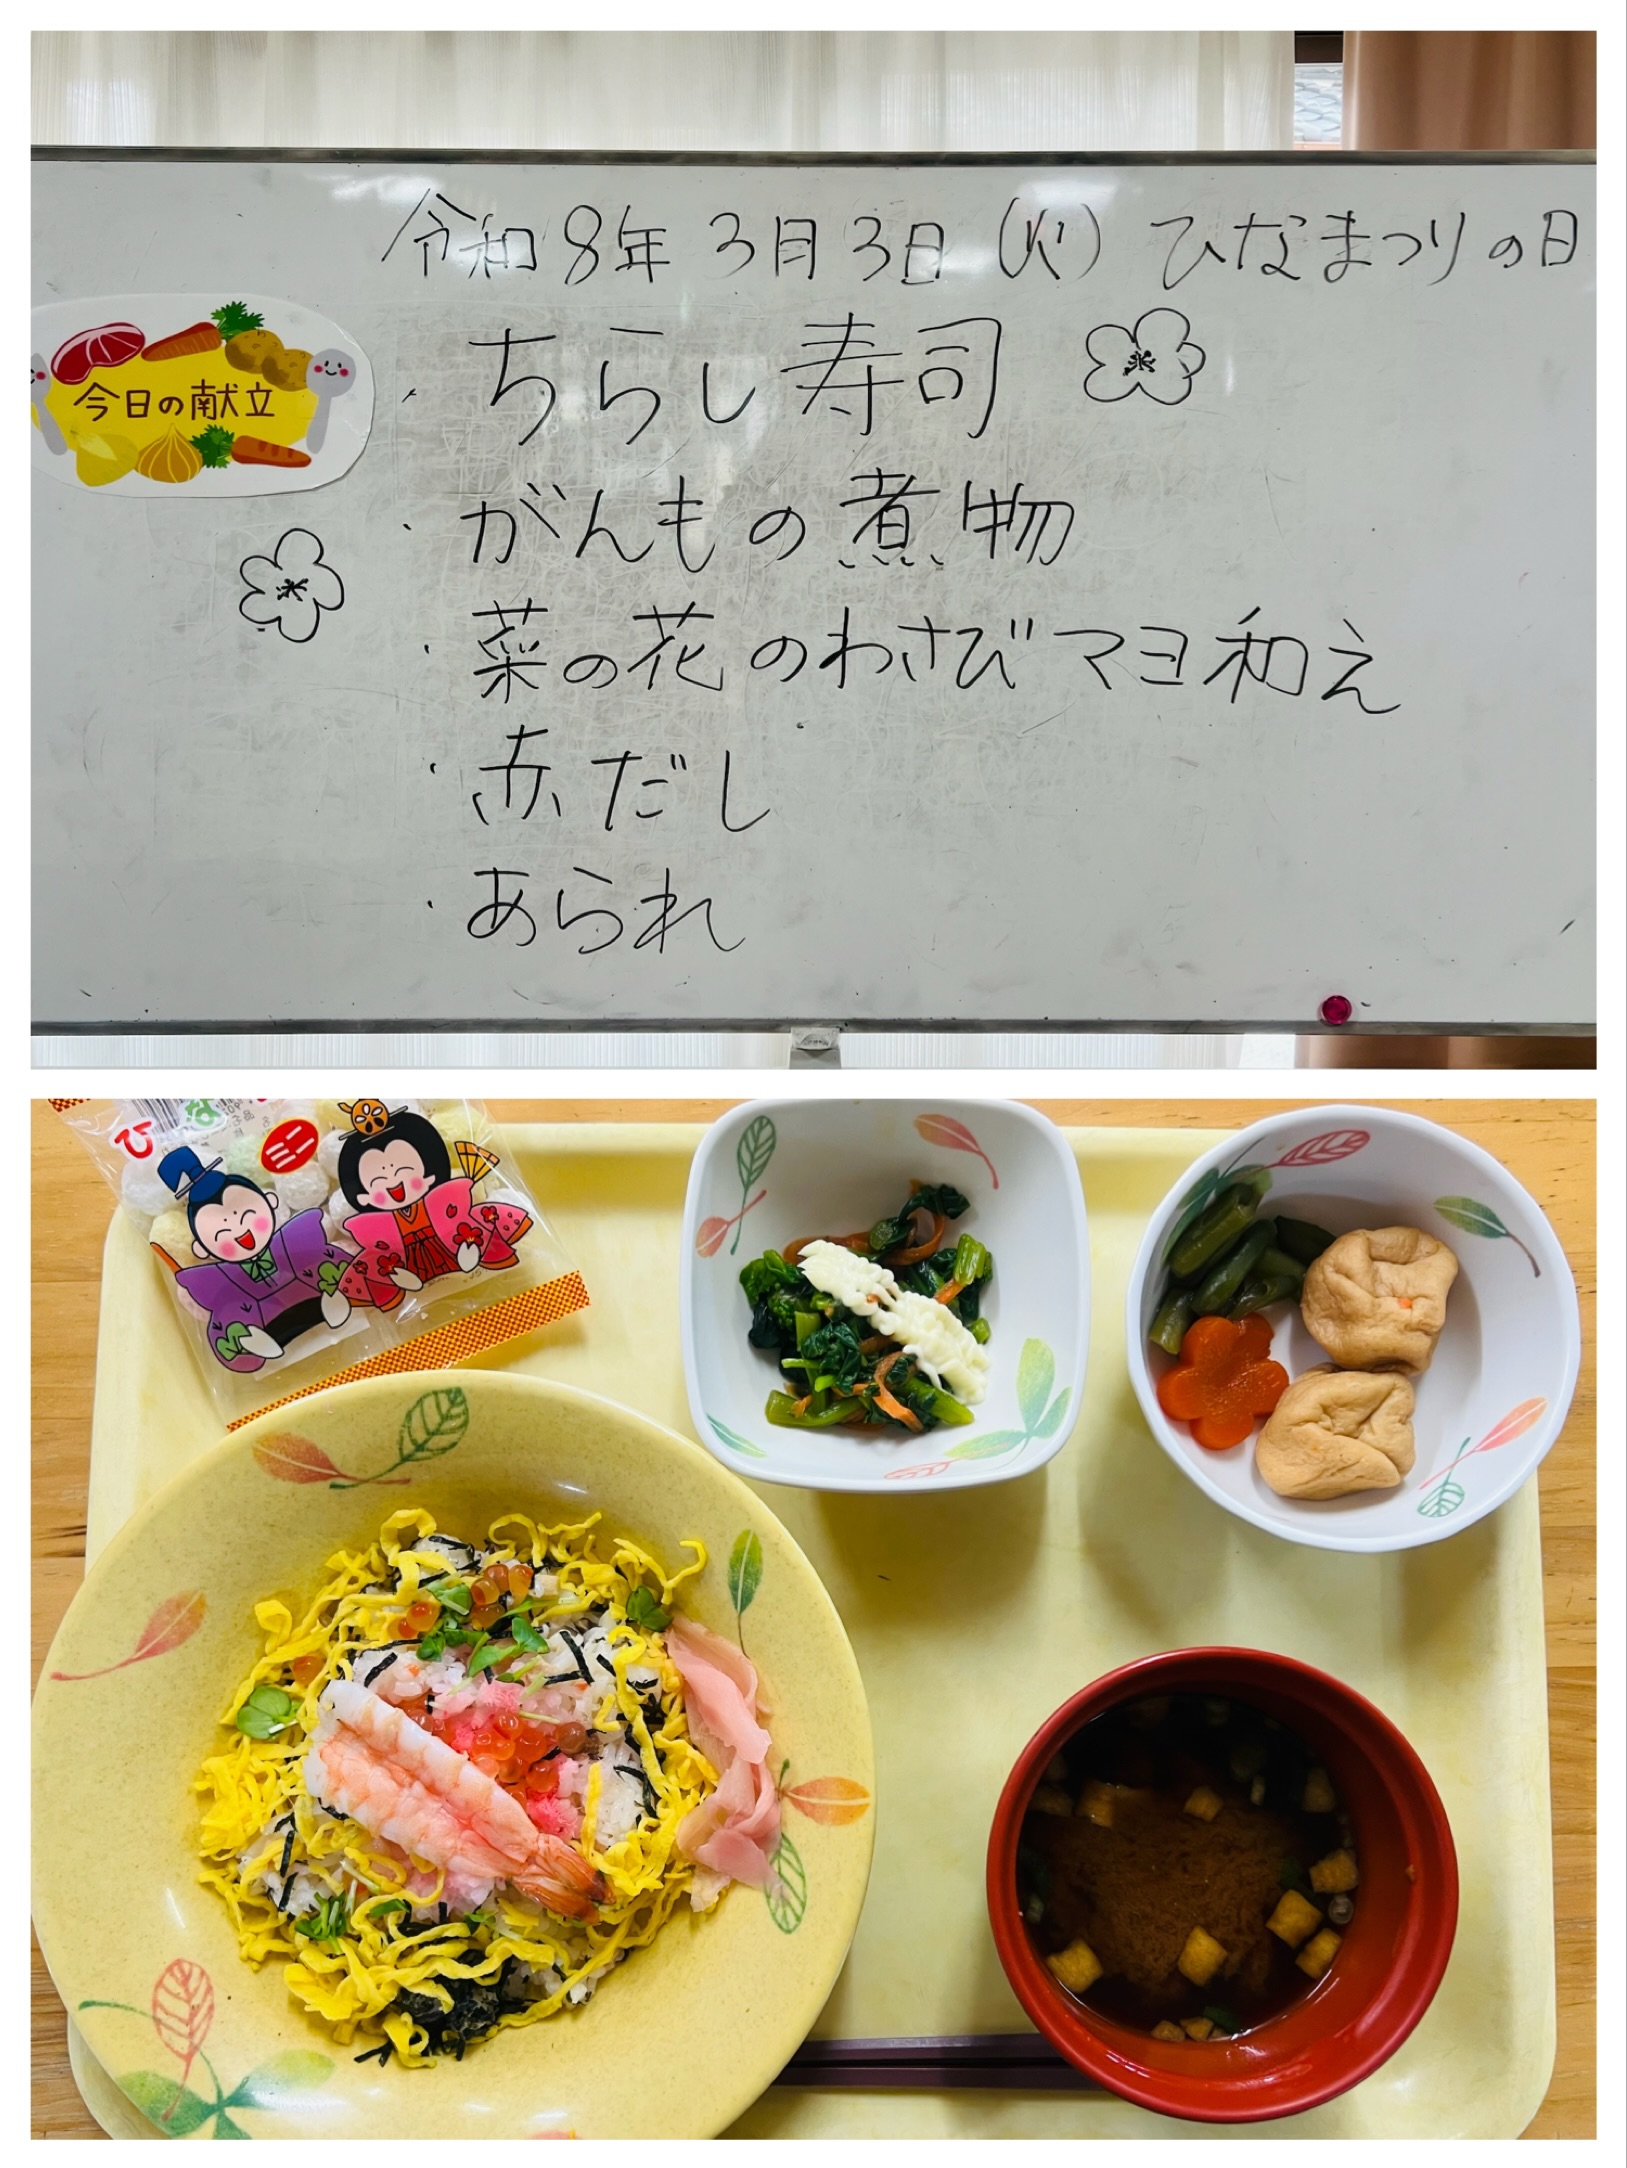 令和8年3月3日(火) ひなまつりの日
今日の献立
・ちらし寿司
・がんもの煮物
・菜の花のわさびマヨ和え
・赤だし
・あられ
ひな